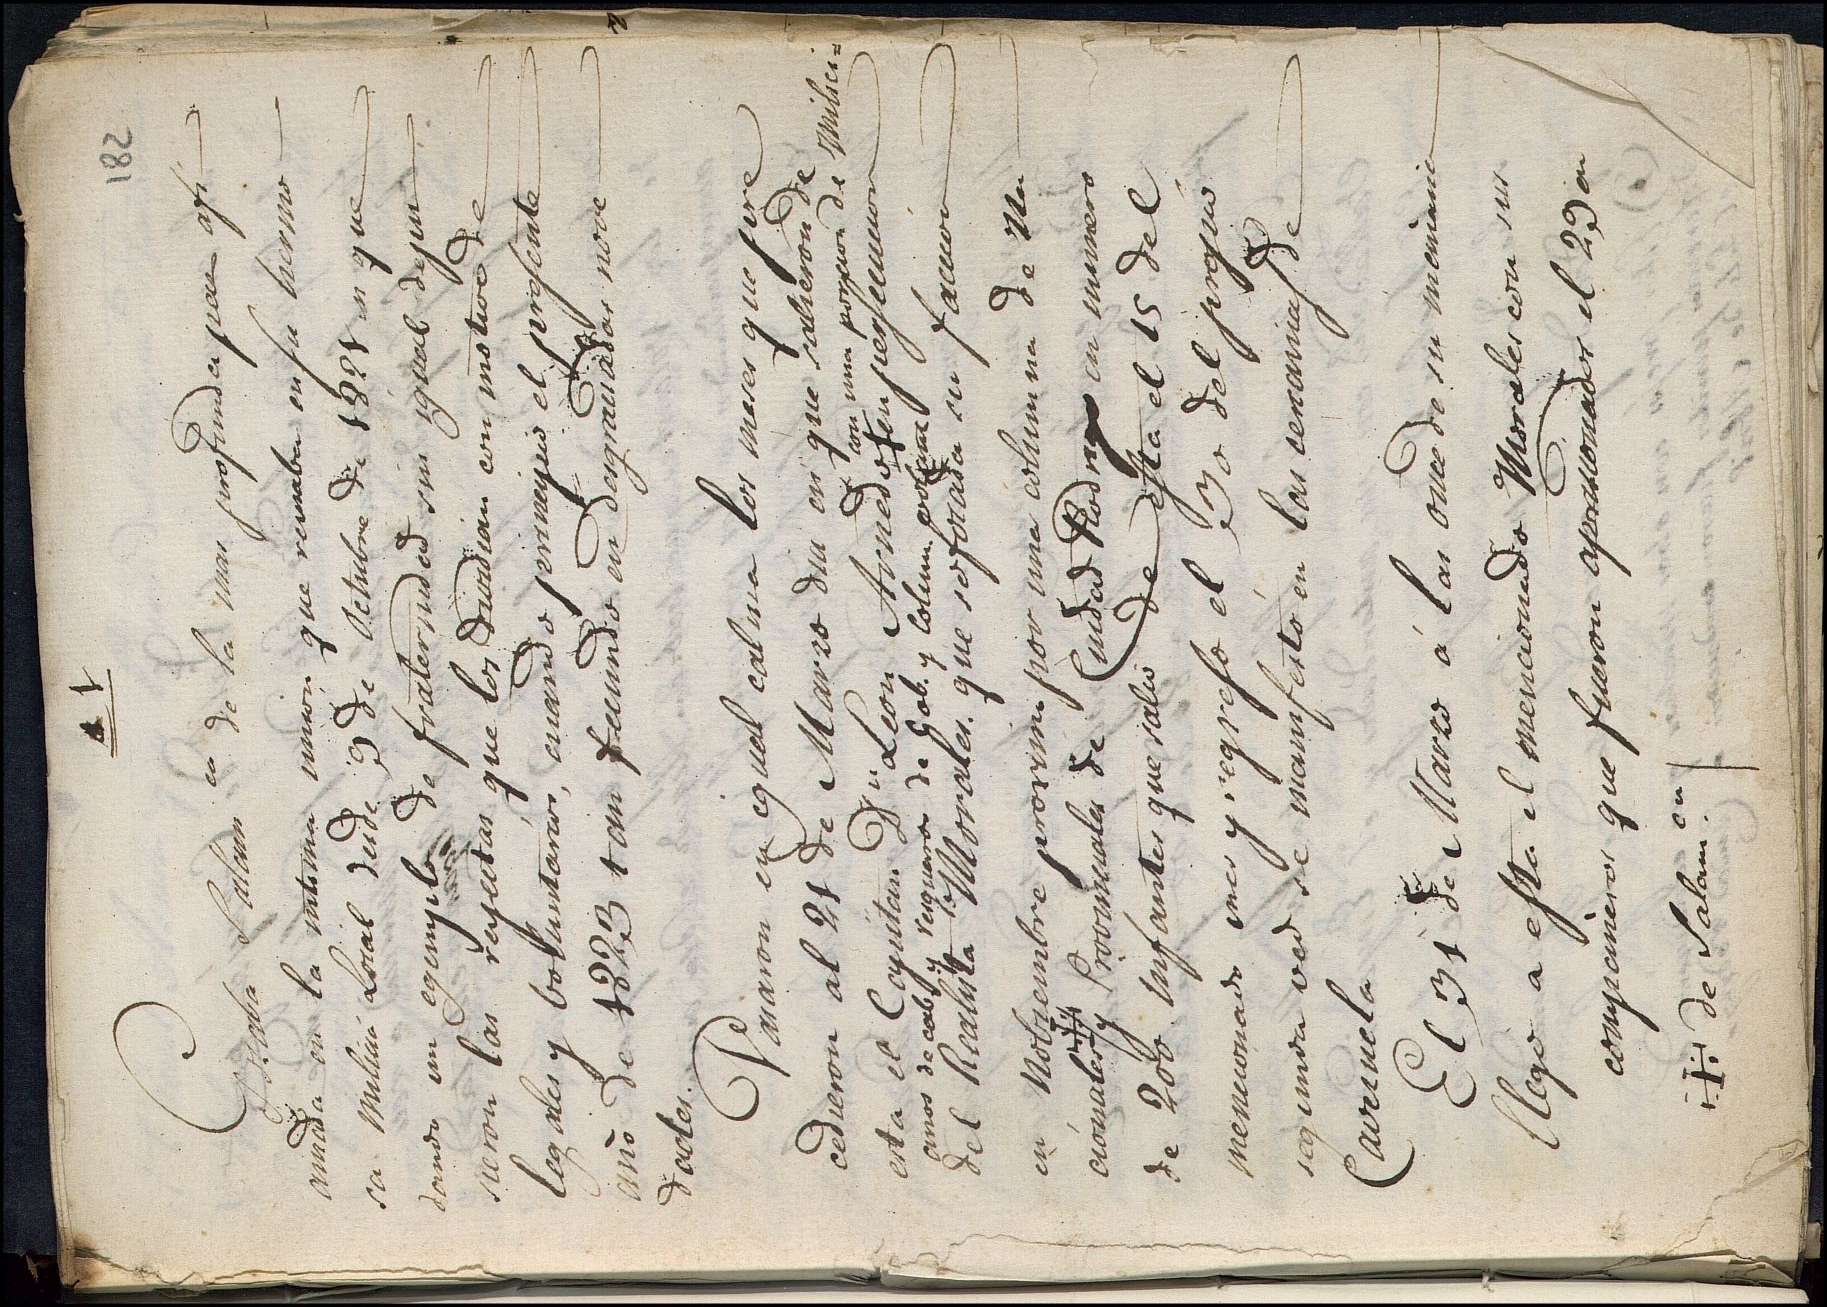 1
182
Estaba Salam ca de la mas profunda paz afi
anzada en la intima unión que reinaba en su hermo
sa Milicia Local desde 9 de Octubre de 1821 en que
dando un egemplo de fraternidad sin igual depu
sieron las rencillas que los dividian con motivo de
legales y boluntarios, cuando principió el presente
año de 1823 tan fecundo en desgraciadas nove
dades.
Pasaron en igual calma los meses que pre
cedieron al 21 de Marzo dia en que salieron de
esta el Capitan Dn Leon Arnedo + en persecucion
+ con una porcion de Milicia
nos de cab y Resguardo de Gob. y Colum
del Realista Morales, que sofocada su faccion
en Nobiembre proximo por una columna de Na
cionales y Provinciales de Ciudad Rodrigo en numero
de 200 infantes que salió de esta el 15 del
mencionado mes y regresó el 30 del propio
segunda vez se manifestó en las cercanias de
Carnuela
El 31 de Marzo á las once de su mañana
llegó a esta el mencionado Morales con sus
compañeros que fueron aprisionados el 29 en
de Salam. ca